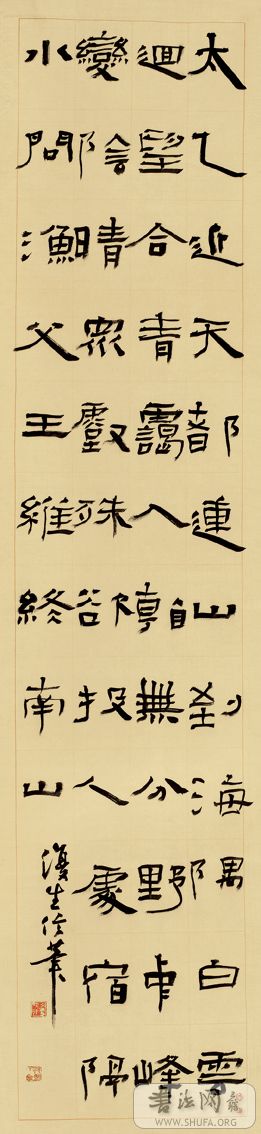 太乙近天都連山到海隅白雲
迴望合青靄入看無分野中峰
變陰晴眾壑殊欲投人處宿隔
水問漁父王維終南山
復生信筆
書法網
WWW.SHUFA.ORG